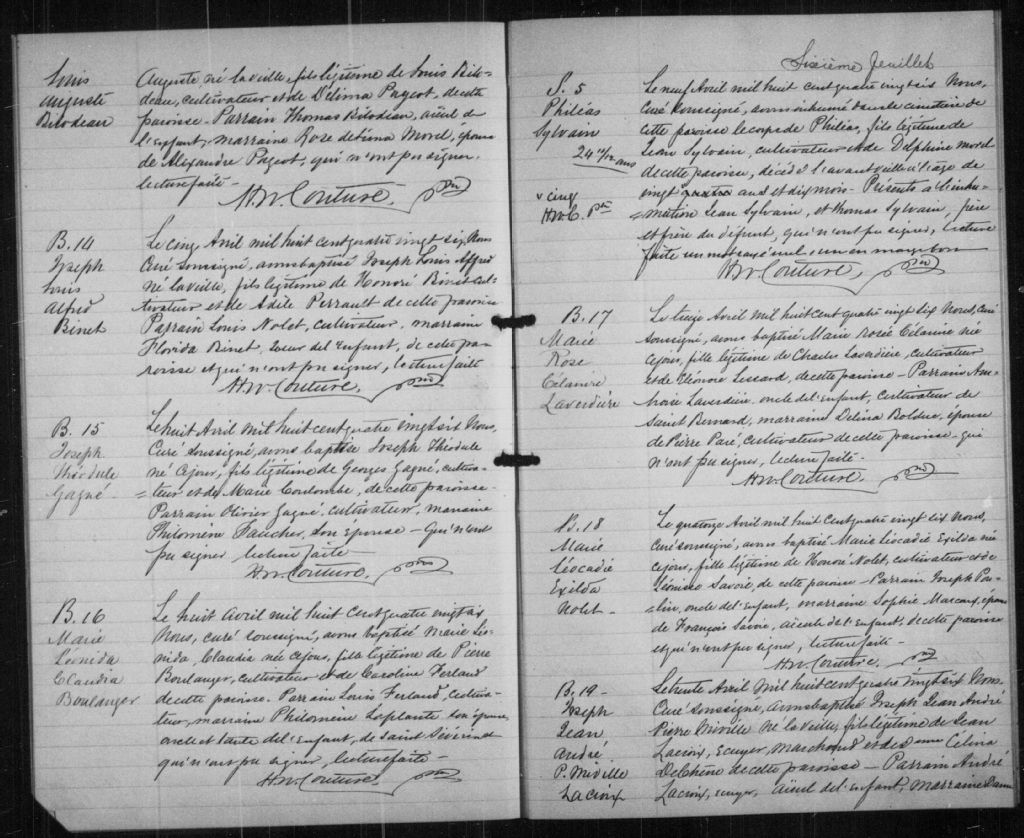 Louis
Auguste
Bilodeau
Auguste né la veille, fils légitime de Louis Bilo-
deau, cultivateur et de Délima Pageot, de cette
paroisse - Parrain Thomas Bilodeau, aïeul de
l'enfant, marraine Rose de Lima Morel, épouse
de Alexandre Pageot, qui n'ont pu signer,
lecture faite -
H.W. Couture, Ptre
B. 14
Joseph
Louis
Alfred
Binet
Le cinq Avril mil huit cent quatre vingt six Nous
Curé soussigné, avons baptisé Joseph Louis Alfred
Né la veille, fils légitime de Honoré Binet cul-
tivateur et de Adèle Perrault de cette paroisse
Parrain Louis Nolet, cultivateur, marraine
Florida Binet, soeur de l'enfant, de cette pa-
roisse et qui n'ont pu signer, lecture faite
H.W. Couture, Ptre
B. 15
Joseph
Théodule
Gagné
Le huit Avril mil huit cent quatre vingt six Nous,
Curé soussigné, avons baptisé Joseph Théodule
né ce jour, fils légitime de Georges Gagné, cultiva-
=teur et de Marie Coulombe, de cette paroisse-
Parrain Olivier Gagné, cultivateur, marraine
Philomène Faucher, son épouse - Qui n'ont
pu signer, lecture faite -
H.W. Couture, Ptre
B. 16
Marie
Léonida
Claudia
Boulanger
Le huit Avril mil huit cent quatre vingt six
Nous, curé soussigné, avons baptisé Marie Léo-
nida, Claudia née ce jour, fille légitime de Pierre
Boulanger, cultivateur et de Caroline Ferland
de cette paroisse. Parrain Louis Ferland, cultiva-
teur, marraine Philomène Laplante son épouse,
oncle et tante de l'enfant, de Saint Séverin et
qui n'ont pu signer, lecture faite -
H.W. Couture, Ptre
Sixième feuillet
S. 5
Philéas
Sylvain
24 10/12 ans
v cinq
H.W.C. Ptre
Le neuf Avril mil huit cent quatre vingt six Nous,
Curé soussigné, avons inhumé dans le cimetière de
cette paroisse le corps de Philéas, fils légitime de
Jean Sylvain, cultivateur et de Delphine Morel
de cette paroisse, décédé l'avant veille à l'âge de
vingt quatre ans et dix mois - Présents à l'inhu-
=mation Jean Sylvain, et Thomas Sylvain, père
et frère du défunt, qui n'ont pu signer, lecture
faite un mot rayé nul, un en marge bon
H.W. Couture, Ptre
B. 17
Marie
Rose
Célanire
Laverdière
Le treize Avril mil huit cent quatre vingt six Nous, Curé
soussigné, avons baptisé Marie Rosée Célanire née
ce jour, fille légitime de Charles Laverdière, cultivateur
et de Eléonore Lessard, de cette paroisse - Parrain Am-
broise Laverdière, oncle de l'enfant, cultivateur de
Saint Bernard, marraine Délina Bolduc, épouse
de Pierre Paré, cultivateur de cette paroisse - qui
n'ont pu signer, lecture faite -
H.W. Couture, Ptre
B. 18
Marie
Léocadie
Exilda
Nolet -
Le quatorze Avril mil huit cent quatre vingt six Nous,
curé soussigné, avons baptisé Marie Léocadie Exilda née
ce jour, fille légitime de Honoré Nolet, cultivateur et de
Léonise Savoie, de cette paroisse - Parrain Joseph Pou-
lin, oncle de l'enfant, marraine Sophie Marcoux, épouse
de François Savoie, aïeule de l'enfant, de cette paroisse
et qui n'ont pu signer, lecture faite -
H.W. Couture, Ptre
B. 19 -
Joseph
Jean
André
P. Miville
Lacroix
Le trente Avril mil huit cent quatre vingt six Nous.
Curé soussigné, avons baptisé Joseph Jean André
Pierre Miville Né la veille, fils légitime de Jean
Lacroix, Ecuyer, Marchand et de Dame Célina
Delchêne de cette paroisse - Parrain André
Lacroix, Ecuyer, aïeul de l'enfant, Marraine Dame